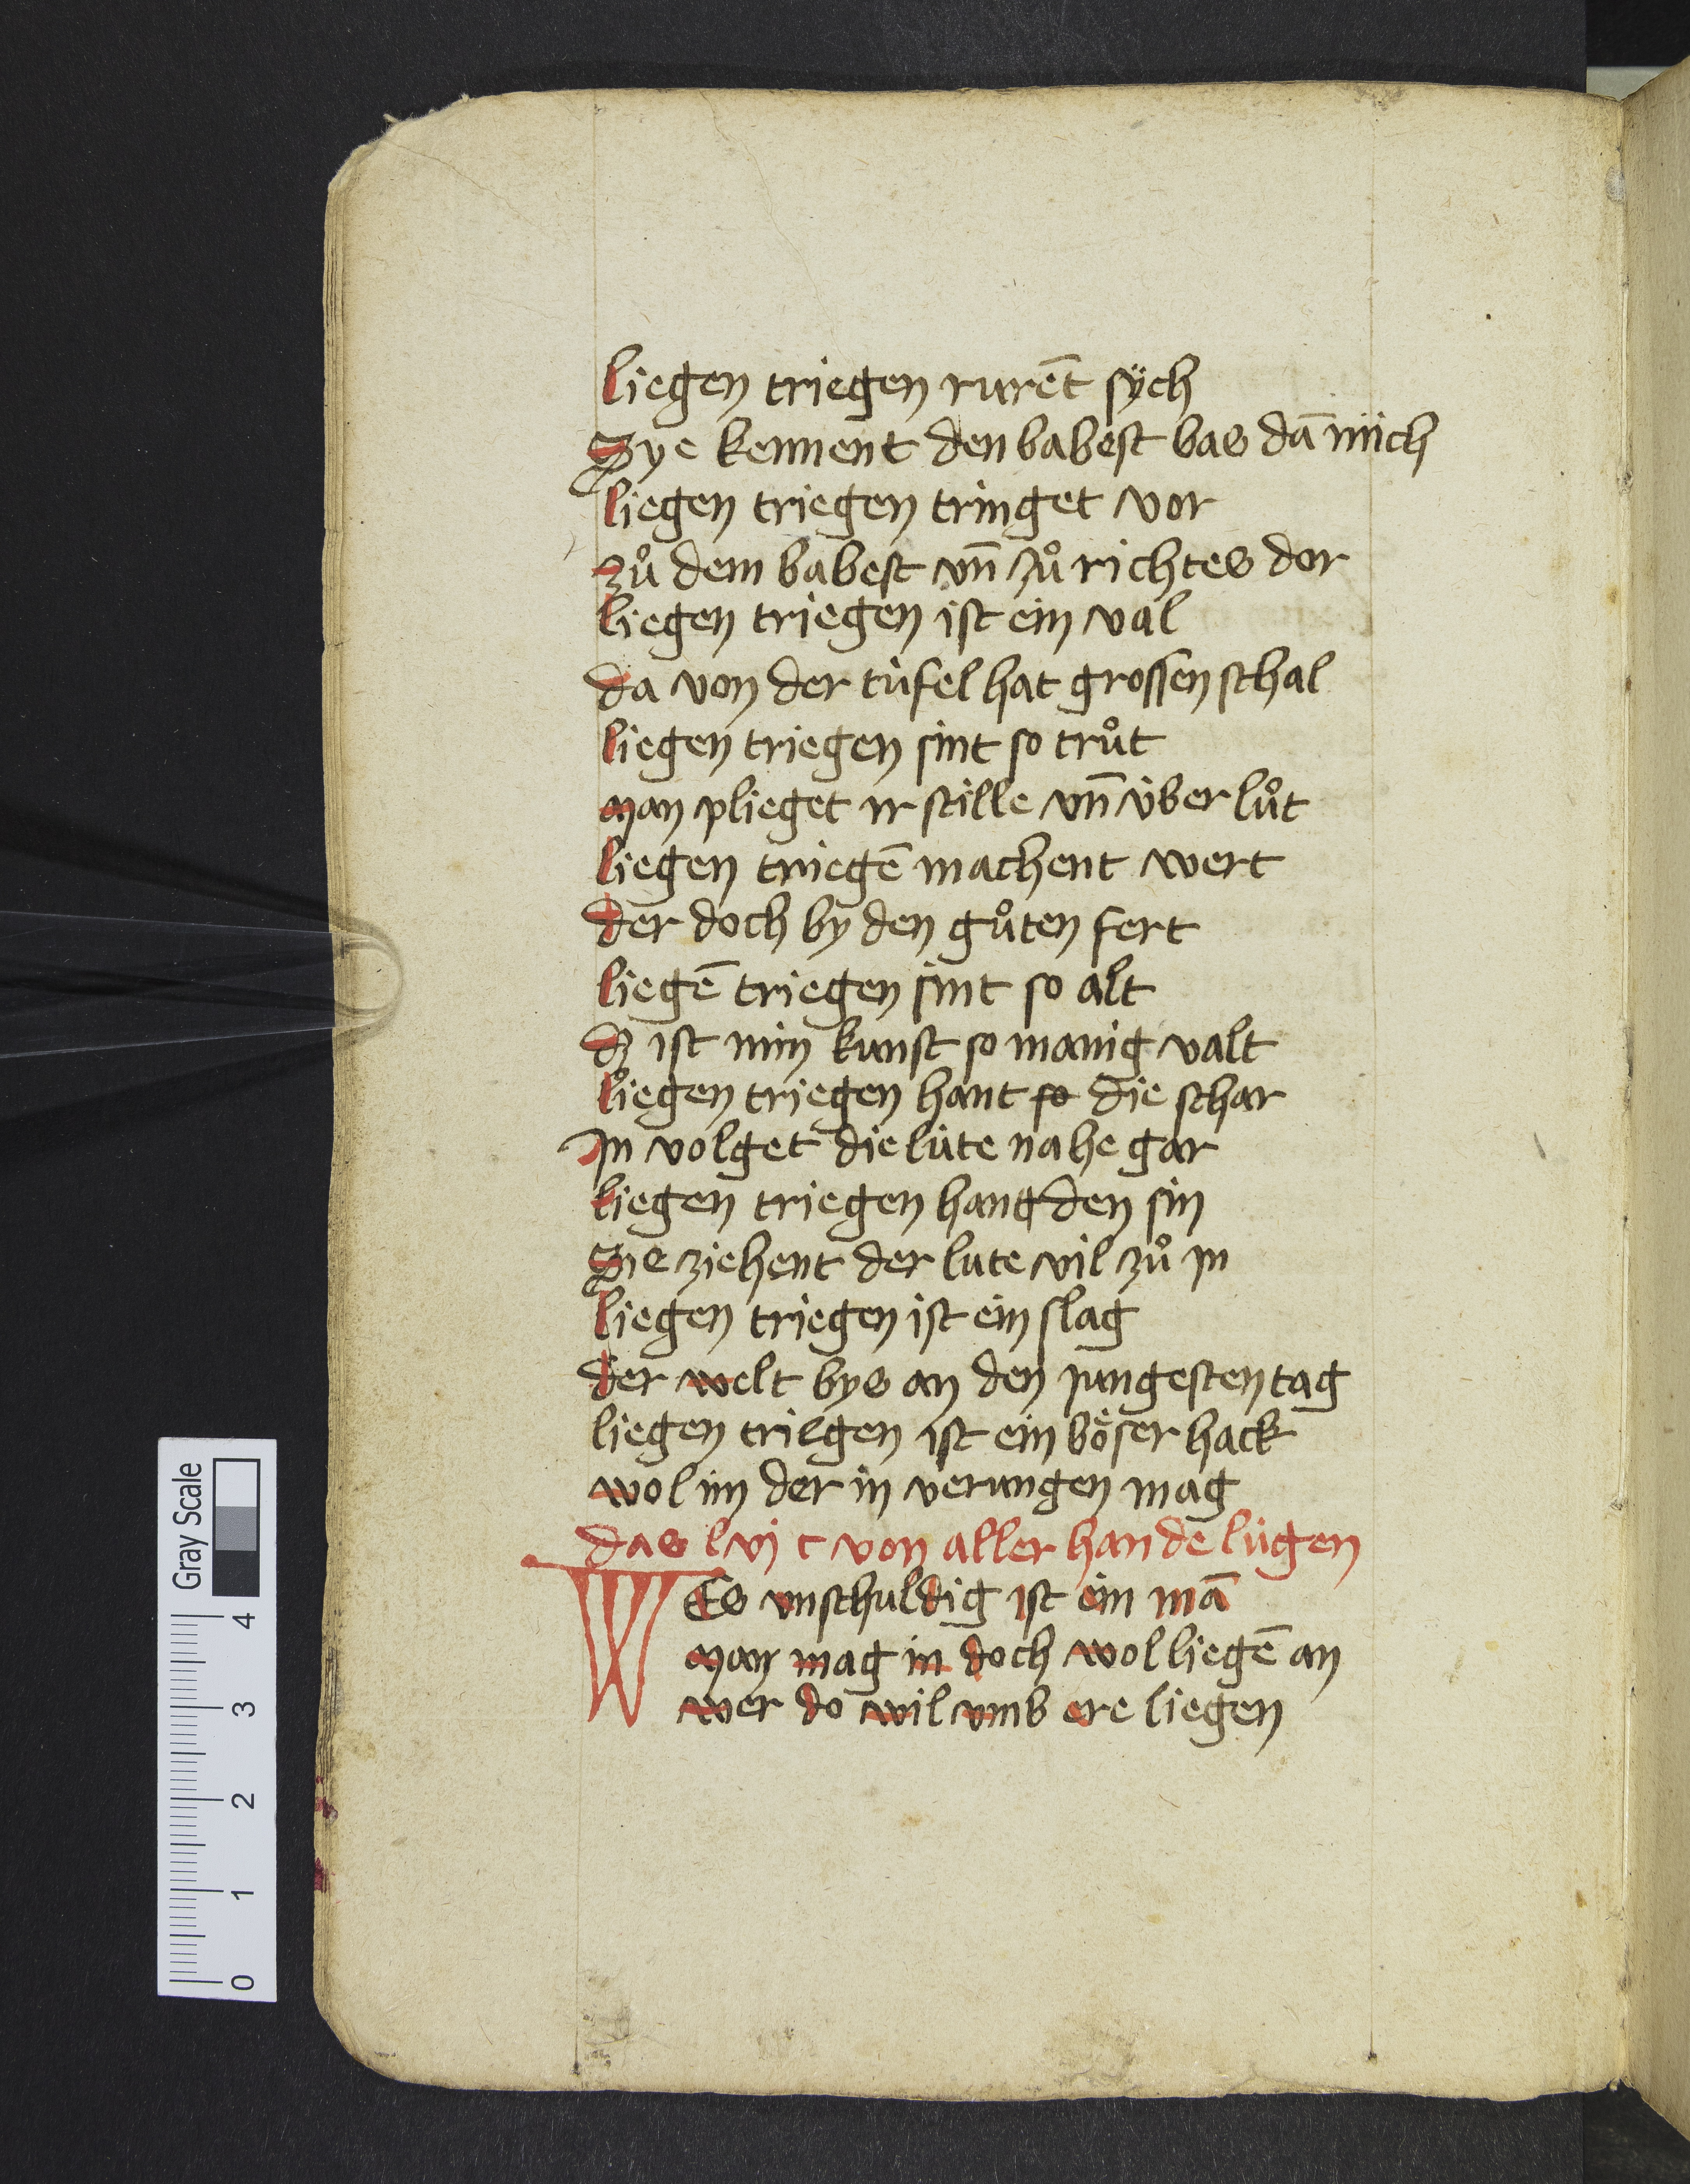 liegen triegen rurēt sÿch
Sye kennent den babest bas dā mich
liegen triegen tringet vor
zů dem babest vn̄ zů richtes dor
liegen triegen ist ein val
da von der tüfel hat grossen schal
liegen triegen sint so trůt
man pflieget ir stille vn̄ über lůt
liegen triegē machent wert
der doch by den gůten fert
liegē triegen sint so alt
dz ist min kunst so manig valt
liegen triegen hant so die schar
In volget die lüte nahe gar
liegen triegen hant den sin
Sie ziehent der lute vil zů in
liegen triegen ist ein slag
der welt bys an den jungesten tag
liegen triegen ist ein böser hack
wol im der in verungen mag
das lvj c von aller hande lügen
WEs vnschuldig ist ein mā
man mag in doch wol liegē an
wer do wil vmb ere liegen
Gray Scale
0 1 2 3 4